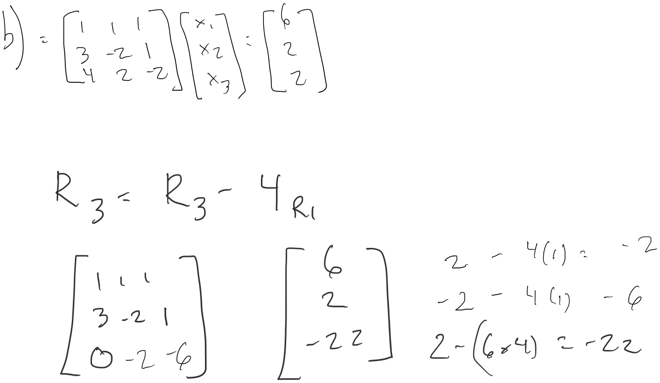 b) = [1 1 1; 3 -2 1; 4 2 -2] [x₁; x₂; x₃] = [6; 2; 2]
R₃ = R₃ - 4R₁
[1 1 1; 3 -2 1; 0 -2 -6] [6; 2; -22]
2 - 4(1) = -2
-2 - 4(1) - 6
2-(6x4) = -22